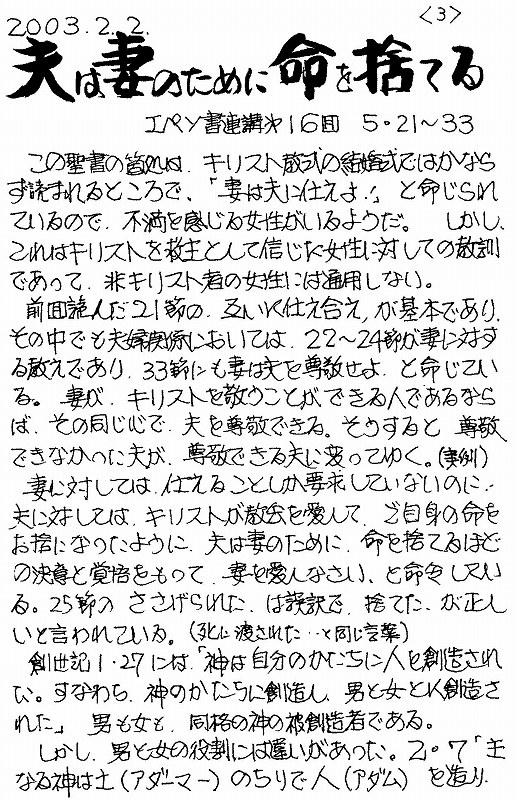 2003.2.2. 〈3〉
夫は妻のために命を捨てる
エペソ書連講㐧16回 5・21~33
この聖書の箇処は、キリスト教式の結婚式ではかなら
ず読まれるところで、「妻は夫に仕えよ!」と命じられ
ているので、不満を感じる女性がいるようだ。しかし、
これはキリストを救主として信じた女性に対しての教訓
であって、非キリスト者の女性には通用しない。
前回読んだ21節の、互いに仕え合え、が基本であり、
その中でも夫婦関係においては、22~24節が妻に対す
る教えであり、33節にも妻は夫を尊敬せよ、と命じてい
る。妻が、キリストを敬うことができる人であるなら
ば、その同じ心で、夫を尊敬できる。そうすると、尊敬
できなかった夫が、尊敬できる夫に変ってゆく。(実例)
妻に対しては、仕えることしか要求していないのに、
夫に対しては、キリストが教会を愛して、ご自身の命を
お捨になったように、夫は妻のために、命を捨てるほど
の決意と覚悟をもって、妻を愛しなさい、と命令してい
る。25節の、ささげられた、は誤訳で、捨てた、が正し
いと言われている。(死に渡された‥と同じ言葉)
創世記1・27には、「神は自分のかたちに人を創造され
た。すなわち、神のかたちに創造し、男と女とに創造さ
れた」男も女も、同格の神の被創造者である。
しかし、男と女の役割には違いがあった。2・7「主
なる神は土(アダーマー)のちりで人(アダム)を造り、